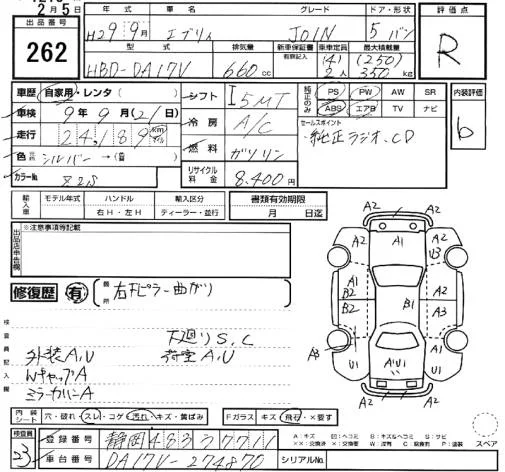 2月5日
出品番号 262
年式 車名 グレード ドア・形状
H29 9月 エブリイ JOIN 5 バン
型式 排気量 新車保証書 有限記載 乗車定員 最大積載量
HBD-DA17V 660cc (4) 2人 (250) 350kg
評価点 R
車歴 自家用・レンタ( )
車検 9年9月(21日)
走行 24,189 km マイル
色 シルバー →(色)
カラーNo.
シフト I5MT
冷房 A/C
燃料 ガソリン
リサイクル料金 8.400円
純正のみ PS PW AW SR
ABS エアB TV ナビ
セールスポイント
・純正ラジオ、CD
内装評価 b
輸入車 モデル年式 ハンドル 輸入区分 書類有効期限
右H・左H ディーラー・並行 月 日迄
出品店申告欄 ※注意事項等記載
修復歴 有 箇所 右Fピラー曲がり
検査員記入欄
下廻りS,C
外装A,U 荷室A,U
Wキャップ A
ミラーカバーA
A2 A2
A2 A1 A2
U3
A1 A2
B2 B1
B2 A3
A3 A1 A1U1 A1
U1
A2 A2
A2
内装シート 穴・破れ・スレ・コゲ・汚れ・キズ・黄ばみ Fガラス キズ・飛石・×要す
A:キズ U:ヘコミ B:キズ&ヘコミ S:サビ
××:交換済 ×:交換要 W:波有 C:腐蝕 P:塗装
スペア
検査員 23
登録番号 静岡483 7711
車台番号 DA17V-274870 シリアルNo.